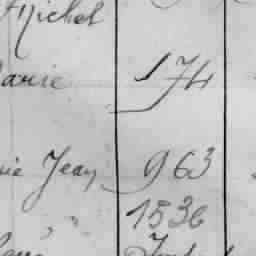 Michel
arie 174
ie Jean 963
1536